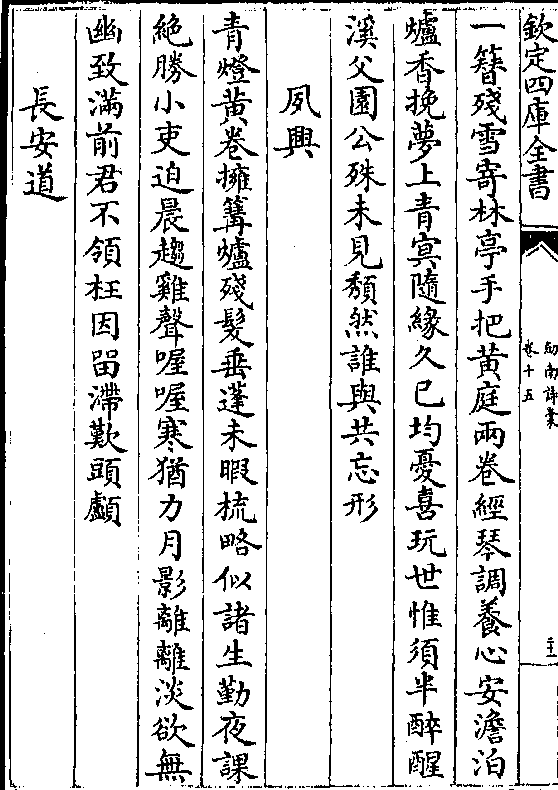 欽定四庫全書
劍南詩稾
卷十五
一簪殘雪寄林亭手把黄庭兩卷經琴調養心安澹泊
爐香挽夢上青冥隨緣久已均憂喜玩世惟須半醉醒
溪父園公殊未見頽然誰與共忘形
夙興
青燈黄卷擁篝爐殘髮垂蓬未暇梳略似諸生勤夜課
絶勝小吏迫晨趨雞聲喔喔寒猶力月影離離淡欲無
幽致滿前君不領枉因留滯歎頭顱
長安道